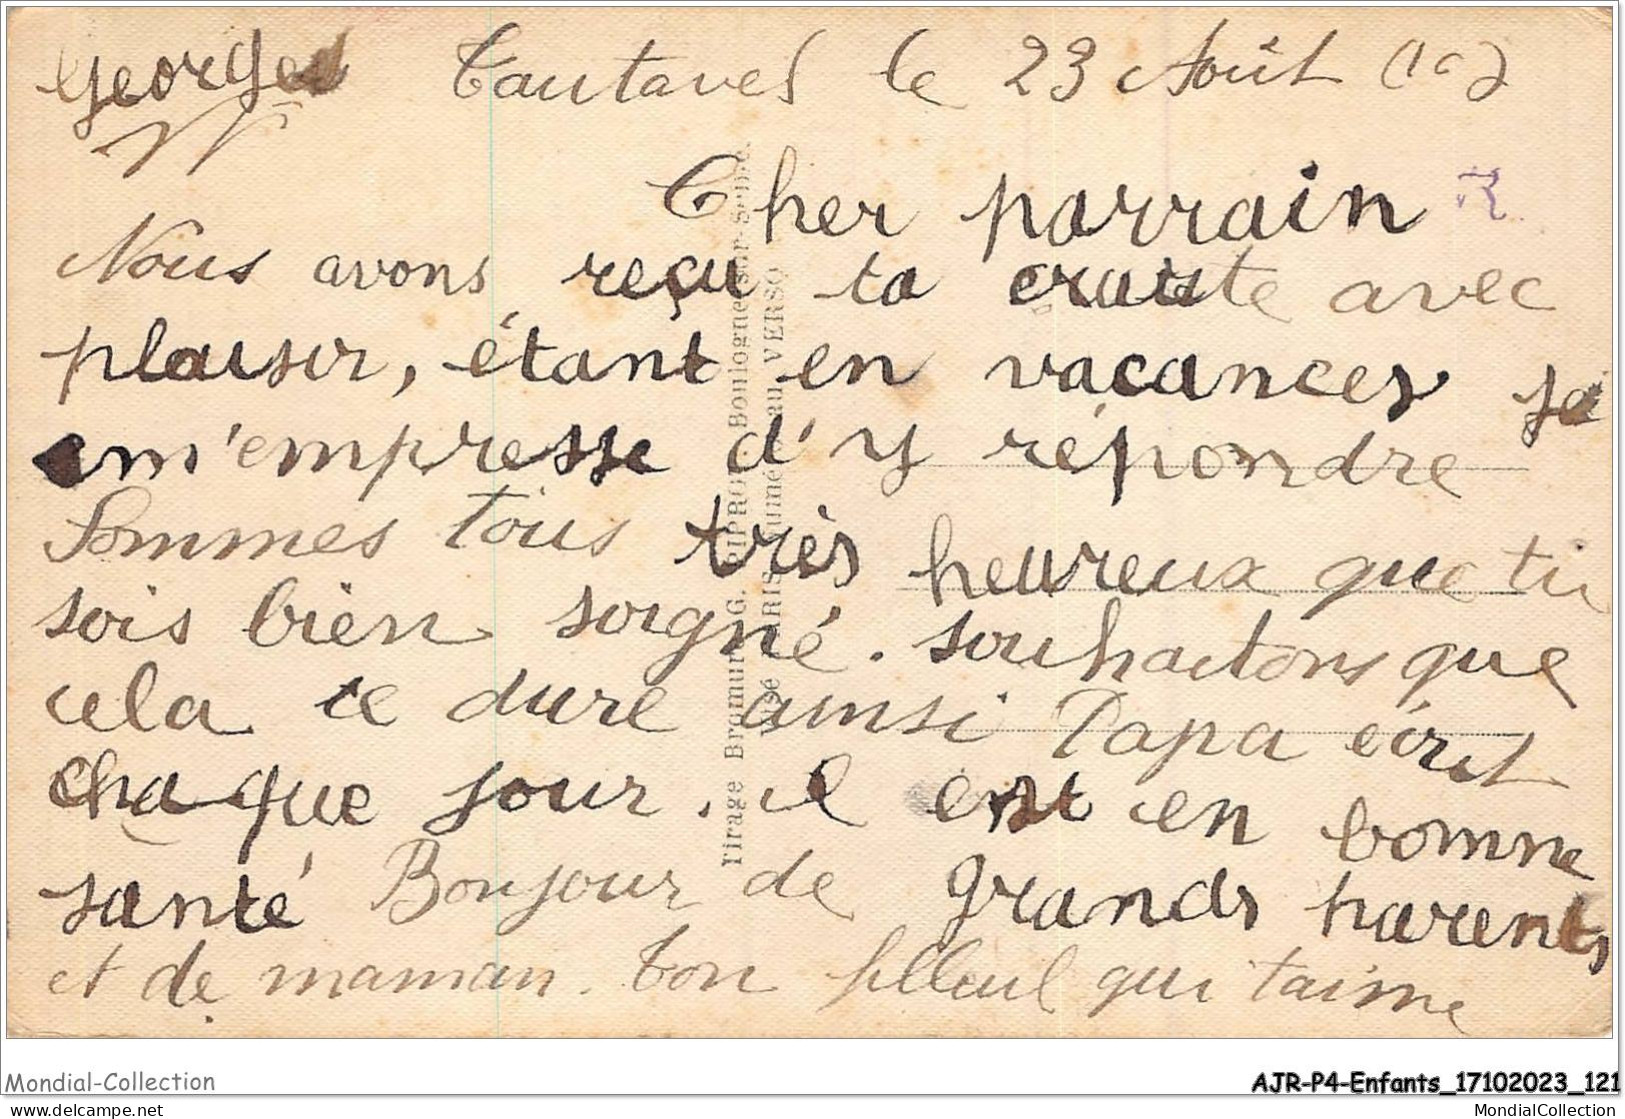 Georges Tautavel le 23 Août
Cher parrain
R
Nous avons reçu ta craute avec
plaisir, étant en vacances je
m'empresse d'y répondre
Sommes tous très heureux que tu
sois bien soigné. souhaitons que
cela te dure ainsi Papa écrit
chaque jour. il est en bonne
santé Bonjour de grands parents,
et de maman. Ton filleul qui taime
Tirage Bromure G. Boulogne-sur-Seine.
Visé PARIS numéro au VERSO
Mondial-Collection
AJR-P4-Enfants_17102023_121
https://www.delcampe.net
MondialCollection